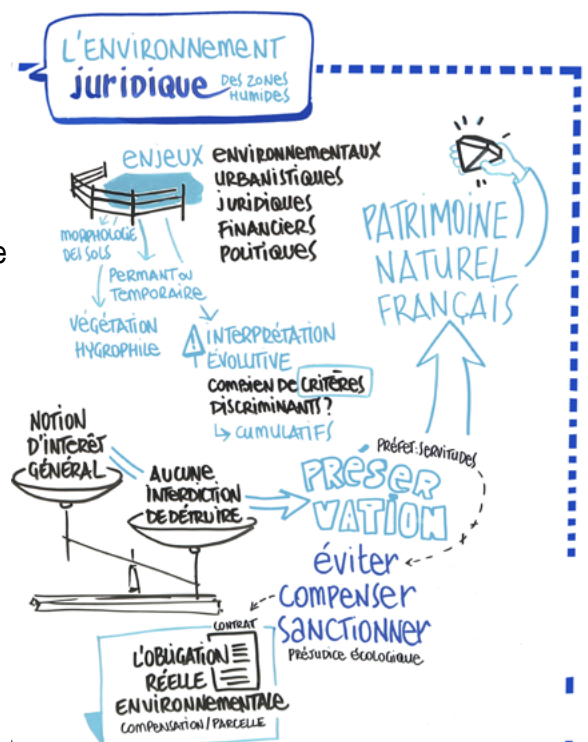 L'ENVIRONNEMENT
JURIDIQUE DES ZONES
HUMIDES
ENJEUX ENVIRONNEMENTAUX
URBANISTIQUES
JURIDIQUES
FINANCIERS
POLITIQUES
MORPHOLOGIE
DES SOLS
e
PERMANT OU
TEMPORAIRE
VÉGÉTATION
HYGROPHILE
INTERPRÉTATION
ÉVOLUTIVE
COMBIEN DE CRITÈRES
DISCRIMINANTS ?
CUMULATIFS
PATRIMOINE
NATUREL
FRANÇAIS
NOTION
D'INTERÊT
GÉNÉRAL
AUCUNE
INTERDICTION
DE DÉTRUIRE
PRÉFET: SERVITUDES
PRÉSER
VATION
éviter
COMPENSER
SANCTIONNER
PRÉJUDICE ÉCOLOGIQUE
CONTRAT
L'OBLIGATION
RÉELLE
ENVIRONNEMENTALE
COMPENSATION / PARCELLE